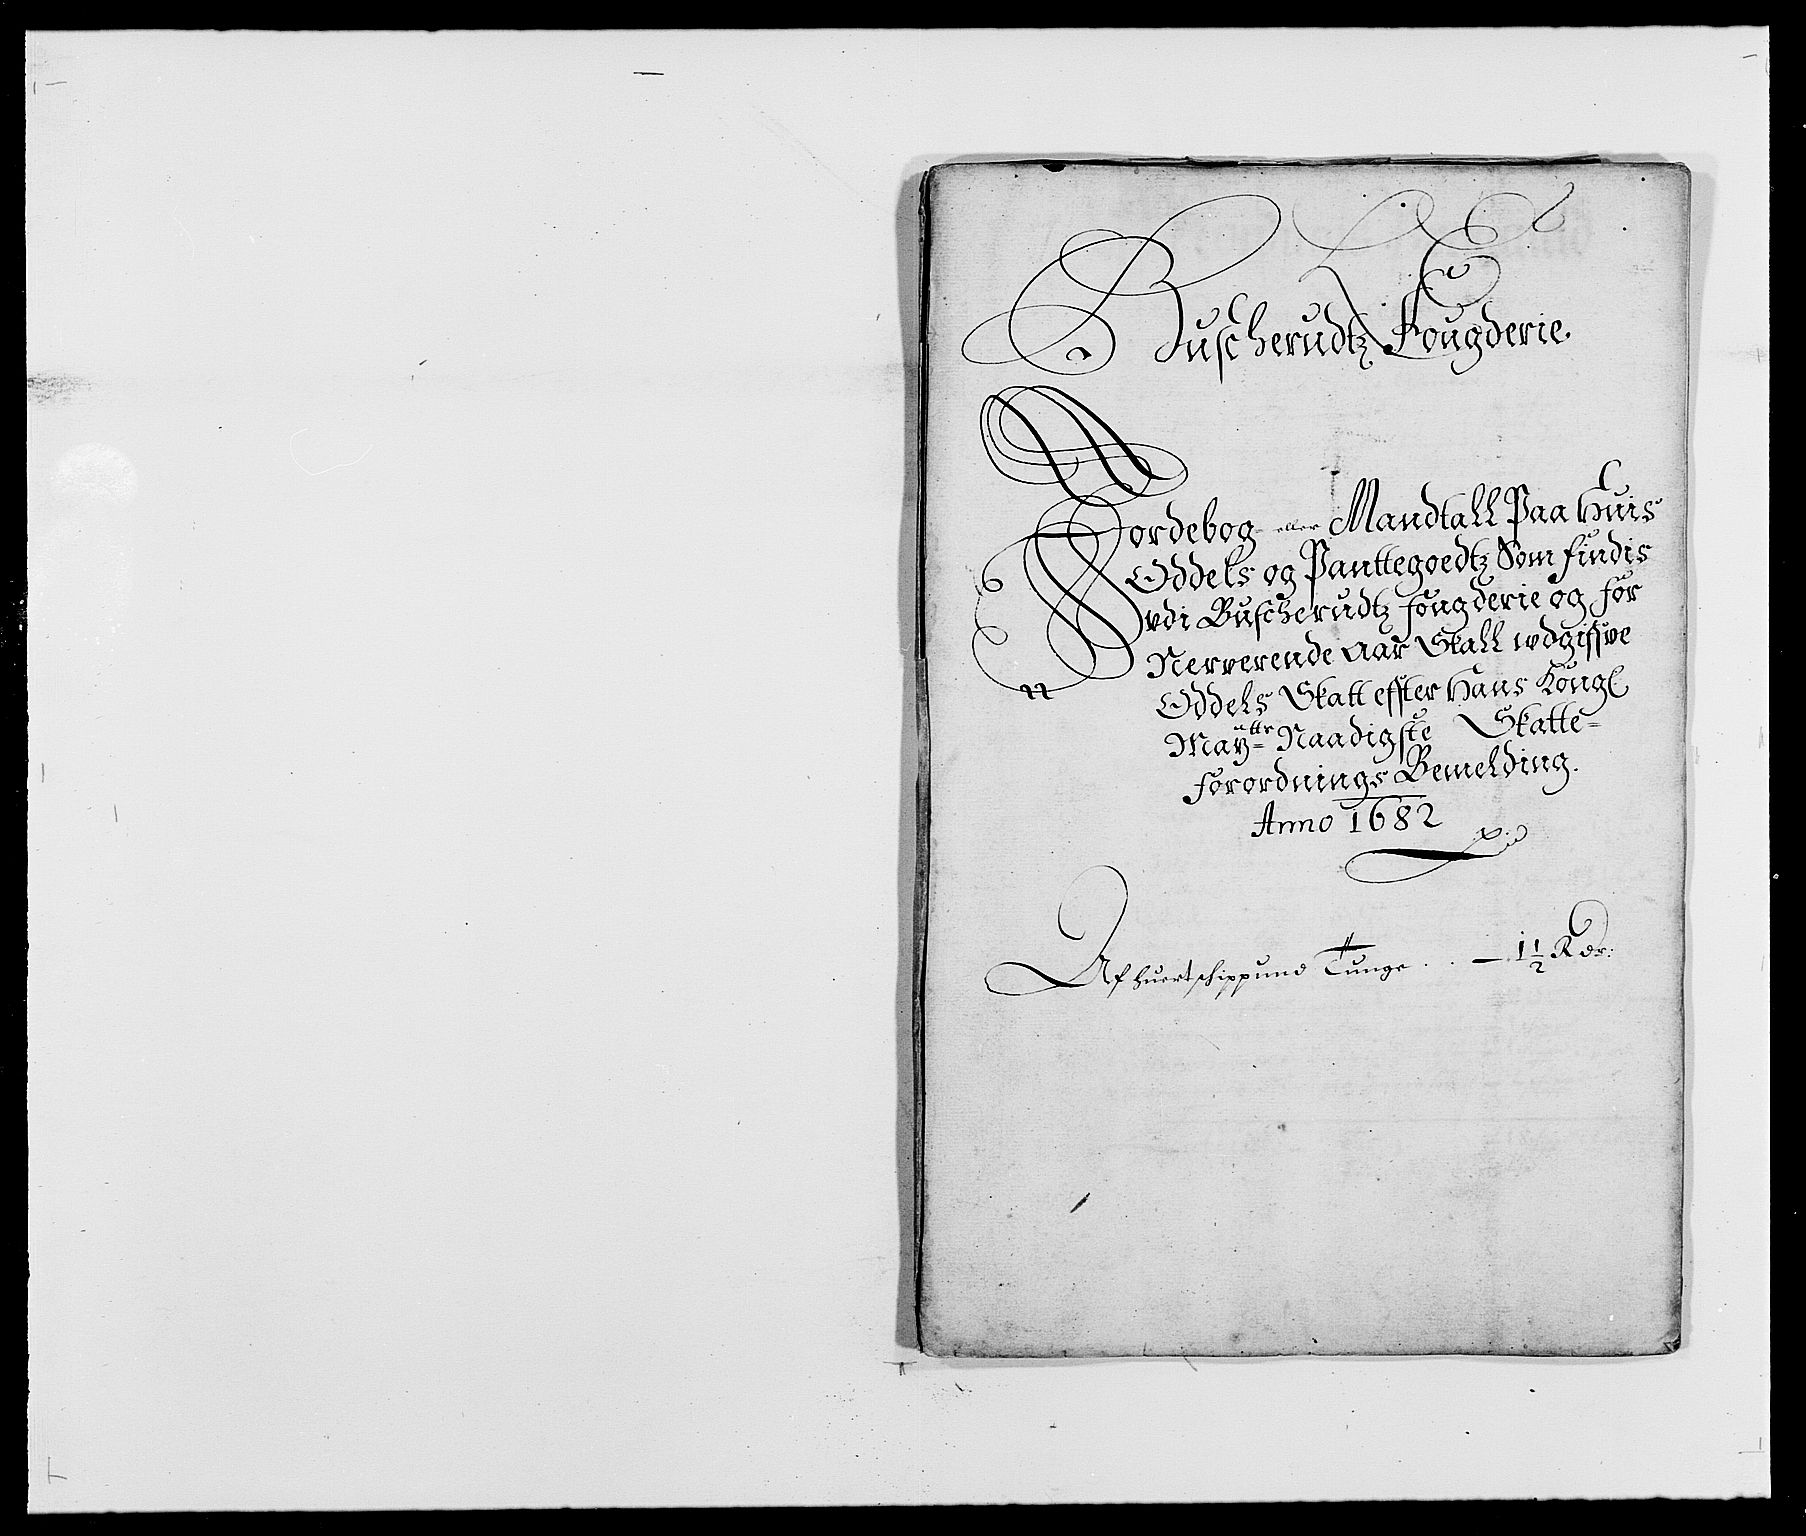 Buscherudtz Fougderie.
Jordebog eller Mandtall Paa Huis
Oddels og Panttegoedtz Som findis
vdi Buscherudtz fougderie og for
Nerverende aar Skall wdgiffve
Oddels Skatt effter Hans Kongl
May: atts Naadigste Skatte-
forordnings Bemelding.
Anno 1682
Af huert schippund Tunge . . — 1 1/2 Rdr: